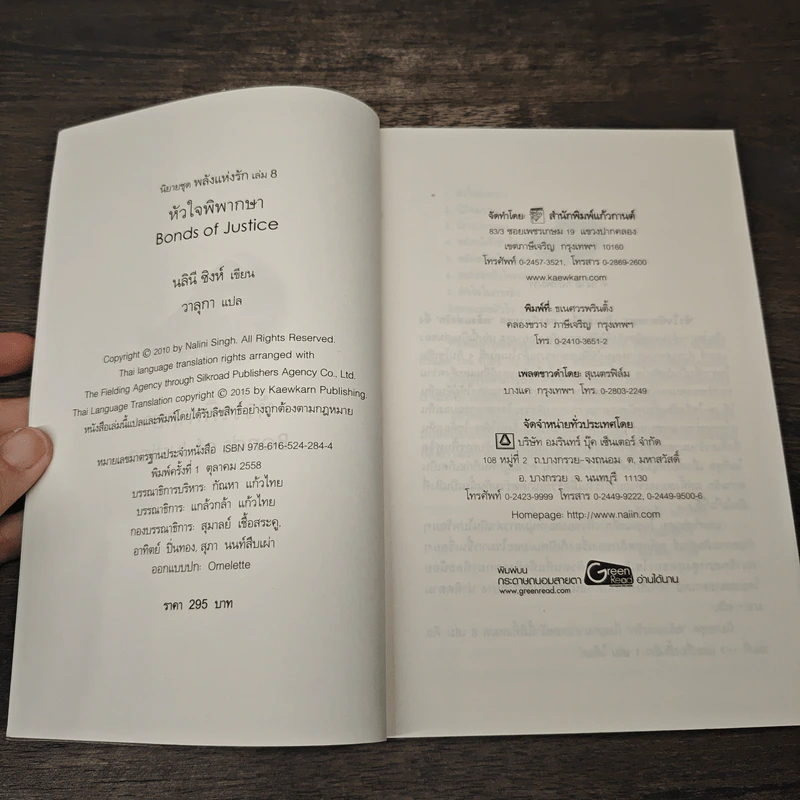 นิยายชุด พลังแห่งรัก เล่ม 8
หัวใจพิพากษา
Bonds of Justice
นลินี ซิงห์ เขียน
วาลุกา แปล
Copyright © 2010 by Nalini Singh. All Rights Reserved.
Thai language translation rights arranged with
The Fielding Agency through Silkroad Publishers Agency Co., Ltd.
Thai Language Translation copyright © 2015 by Kaewkarn Publishing.
หนังสือเล่มนี้แปลและพิมพ์โดยได้รับลิขสิทธิ์อย่างถูกต้องตามกฎหมาย
หมายเลขมาตรฐานประจำหนังสือ ISBN 978-616-524-284-4
พิมพ์ครั้งที่ 1 ตุลาคม 2558
บรรณาธิการบริหาร: กัณหา แก้วไทย
บรรณาธิการ: แกล้วกล้า แก้วไทย
กองบรรณาธิการ: สุมาลย์ เชื้อสระคู,
อาทิตย์ ปิ่นทอง, สุภา นนท์สืบเผ่า
ออกแบบปก: Omelette
ราคา 295 บาท
จัดทำโดย: สำนักพิมพ์แก้วกานต์
83/3 ซอยเพชรเกษม 19 แขวงปากคลอง
เขตภาษีเจริญ กรุงเทพฯ 10160
โทรศัพท์ 0-2457-3521, โทรสาร 0-2869-2600
www.kaewkarn.com
พิมพ์ที่: ธเนศวรพรินติ้ง
คลองขวาง ภาษีเจริญ กรุงเทพฯ
โทร. 0-2410-3651-2
เพลตขาวดำโดย: สุเนตรฟิล์ม
บางแค กรุงเทพฯ โทร. 0-2803-2249
จัดจำหน่ายทั่วประเทศโดย
บริษัท อมรินทร์ บุ๊ค เซ็นเตอร์ จำกัด
108 หมู่ที่ 2 ถ.บางกรวย-จงถนอม ต. มหาสวัสดิ์
อ. บางกรวย จ. นนทบุรี 11130
โทรศัพท์ 0-2423-9999 โทรสาร 0-2449-9222, 0-2449-9500-6
Homepage: http://www.naiin.com
พิมพ์บน
กระดาษถนอมสายตา Green Read อ่านได้นาน
www.greenread.com